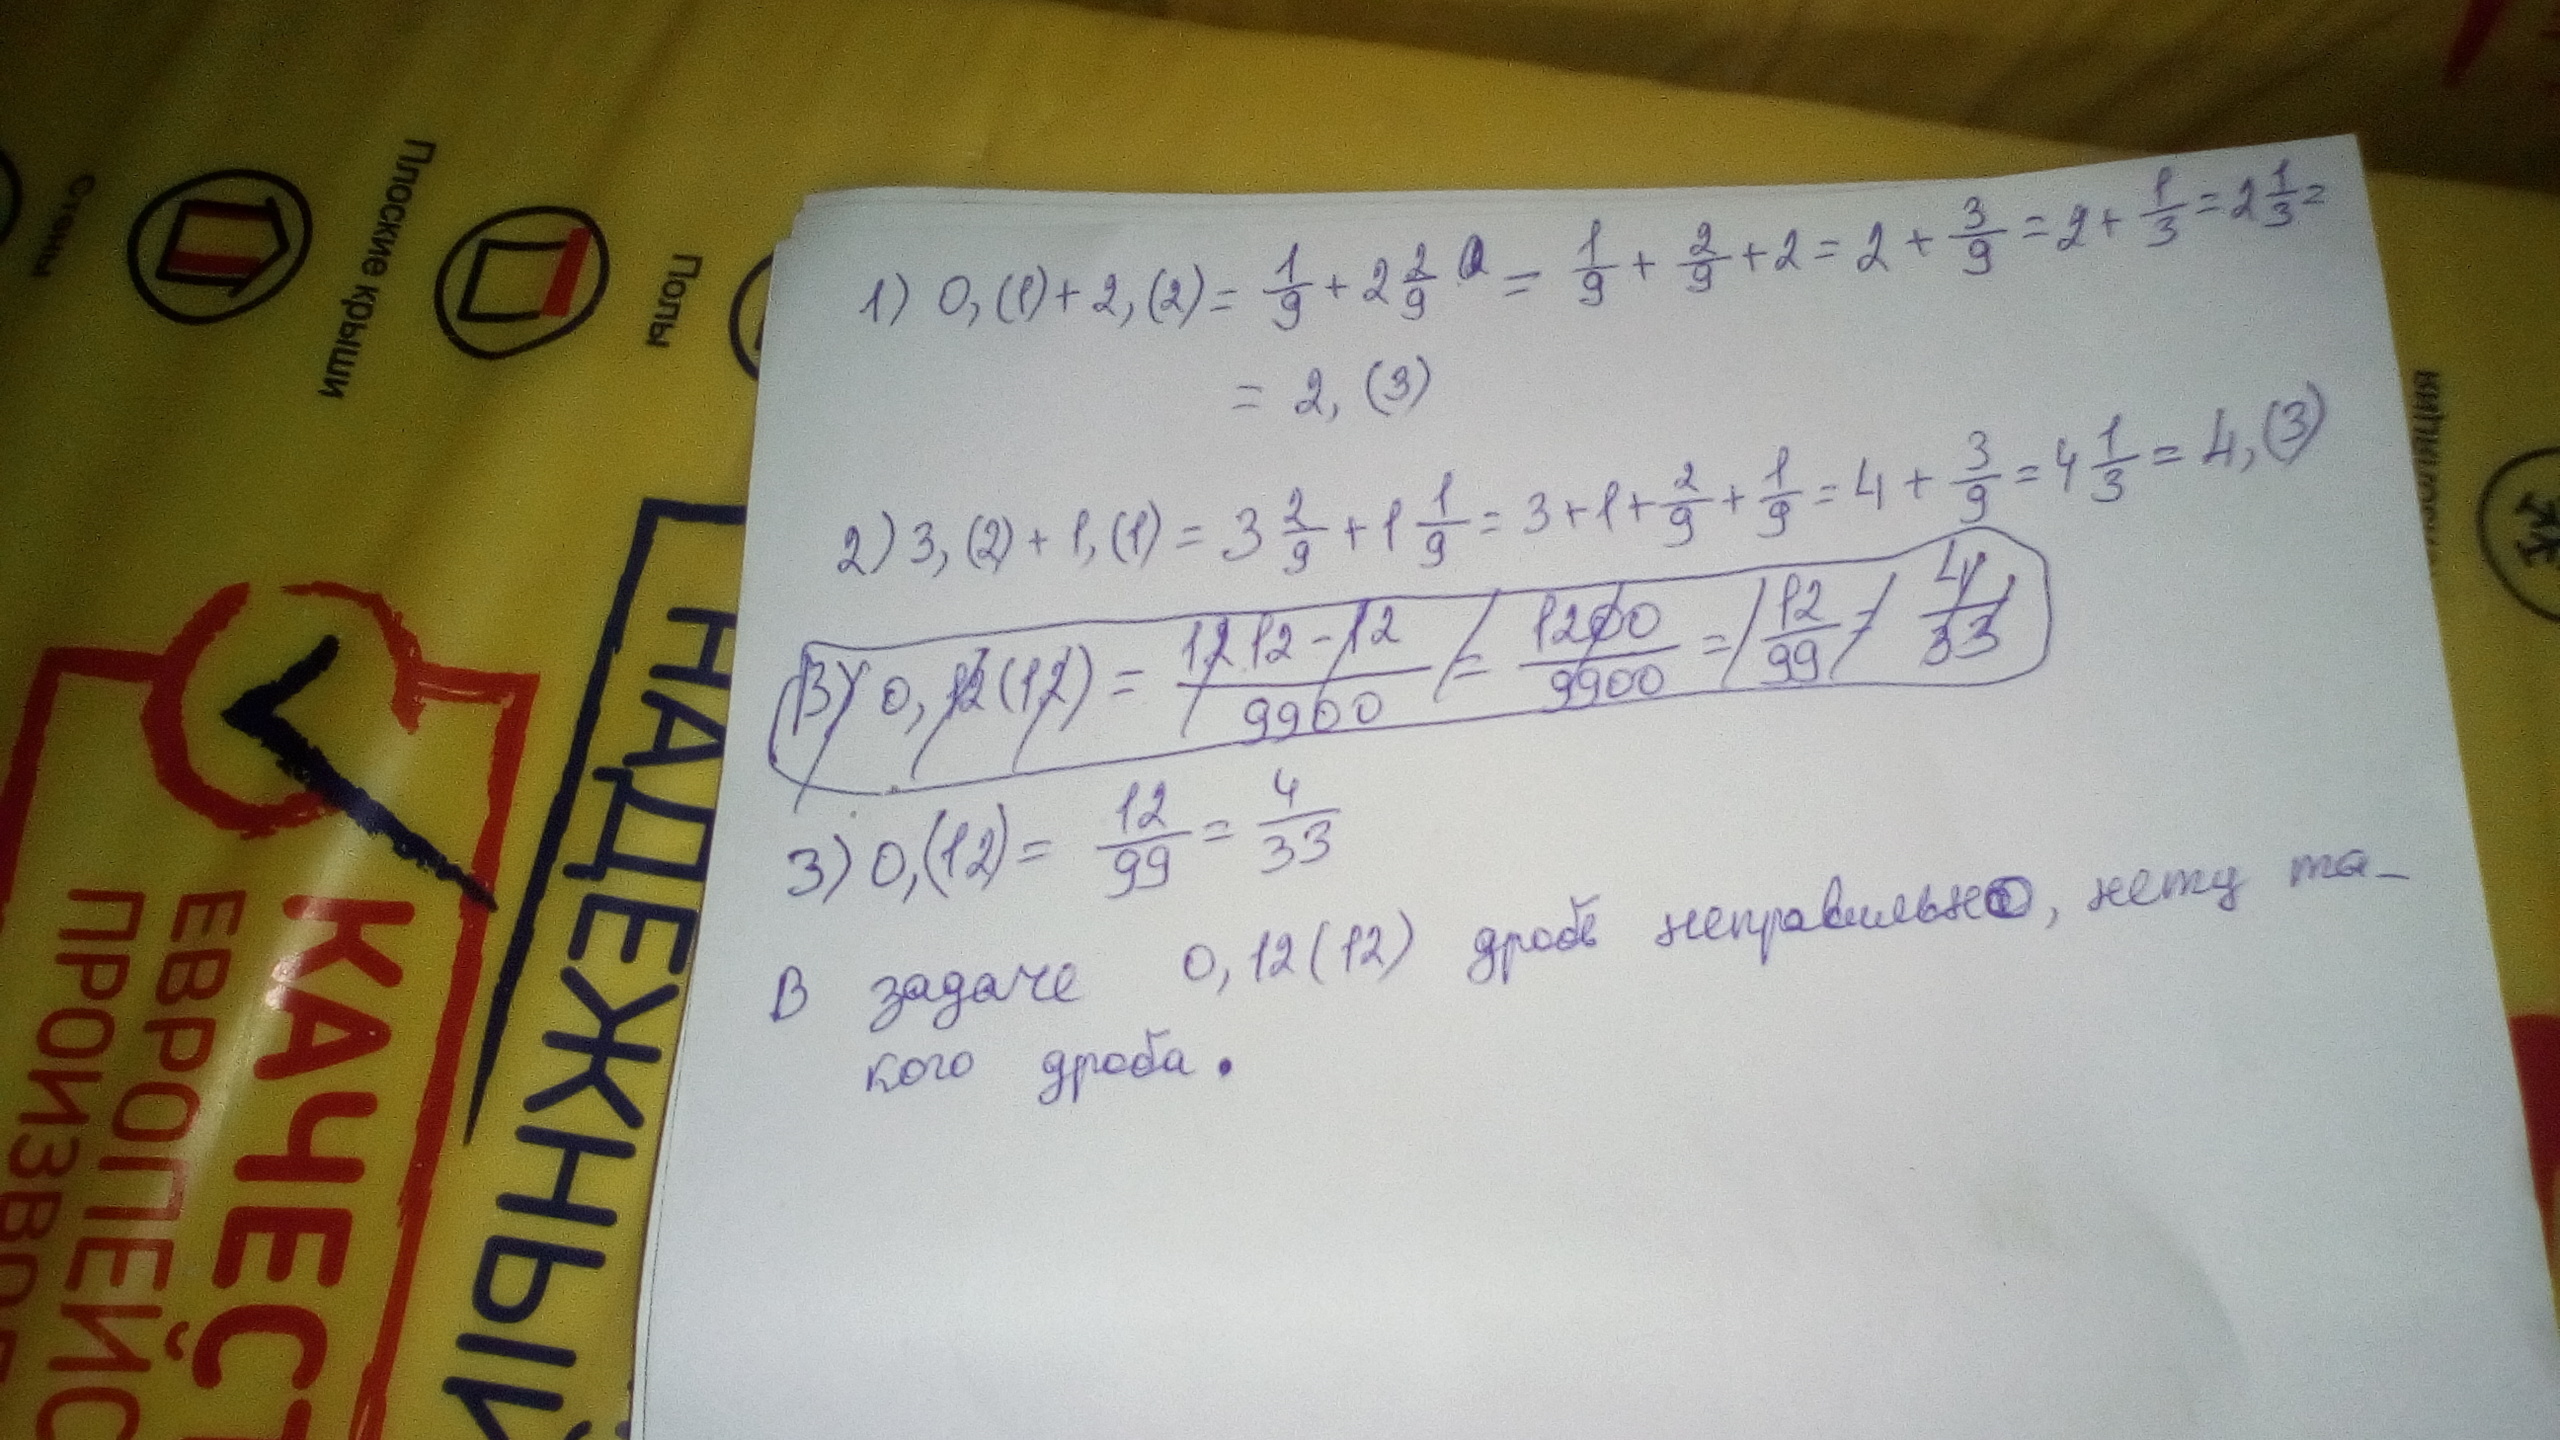 1) 0,(1)+2,(2)= 1/9 + 2 2/9 = 1/9 + 2/9 + 2 = 2 + 3/9 = 2 + 1/3 = 2 1/3 =
= 2,(3)
2) 3,(2)+1,(1) = 3 2/9 + 1 1/9 = 3+1+ 2/9 + 1/9 = 4 + 3/9 = 4 1/3 = 4,(3)
3) 0,12(12) = 1212-12/9900 = 1200/9900 = 12/99 = 4/33
3) 0,(12) = 12/99 = 4/33
В задаче 0,12(12) дробь неправильно, нету та-
кого дроба.
Стены
Плоские крыши
Полы
НАДЕЖНЫЙ
КАЧЕСТ
ЕВРОПЕЙС
ПРОИЗВОД